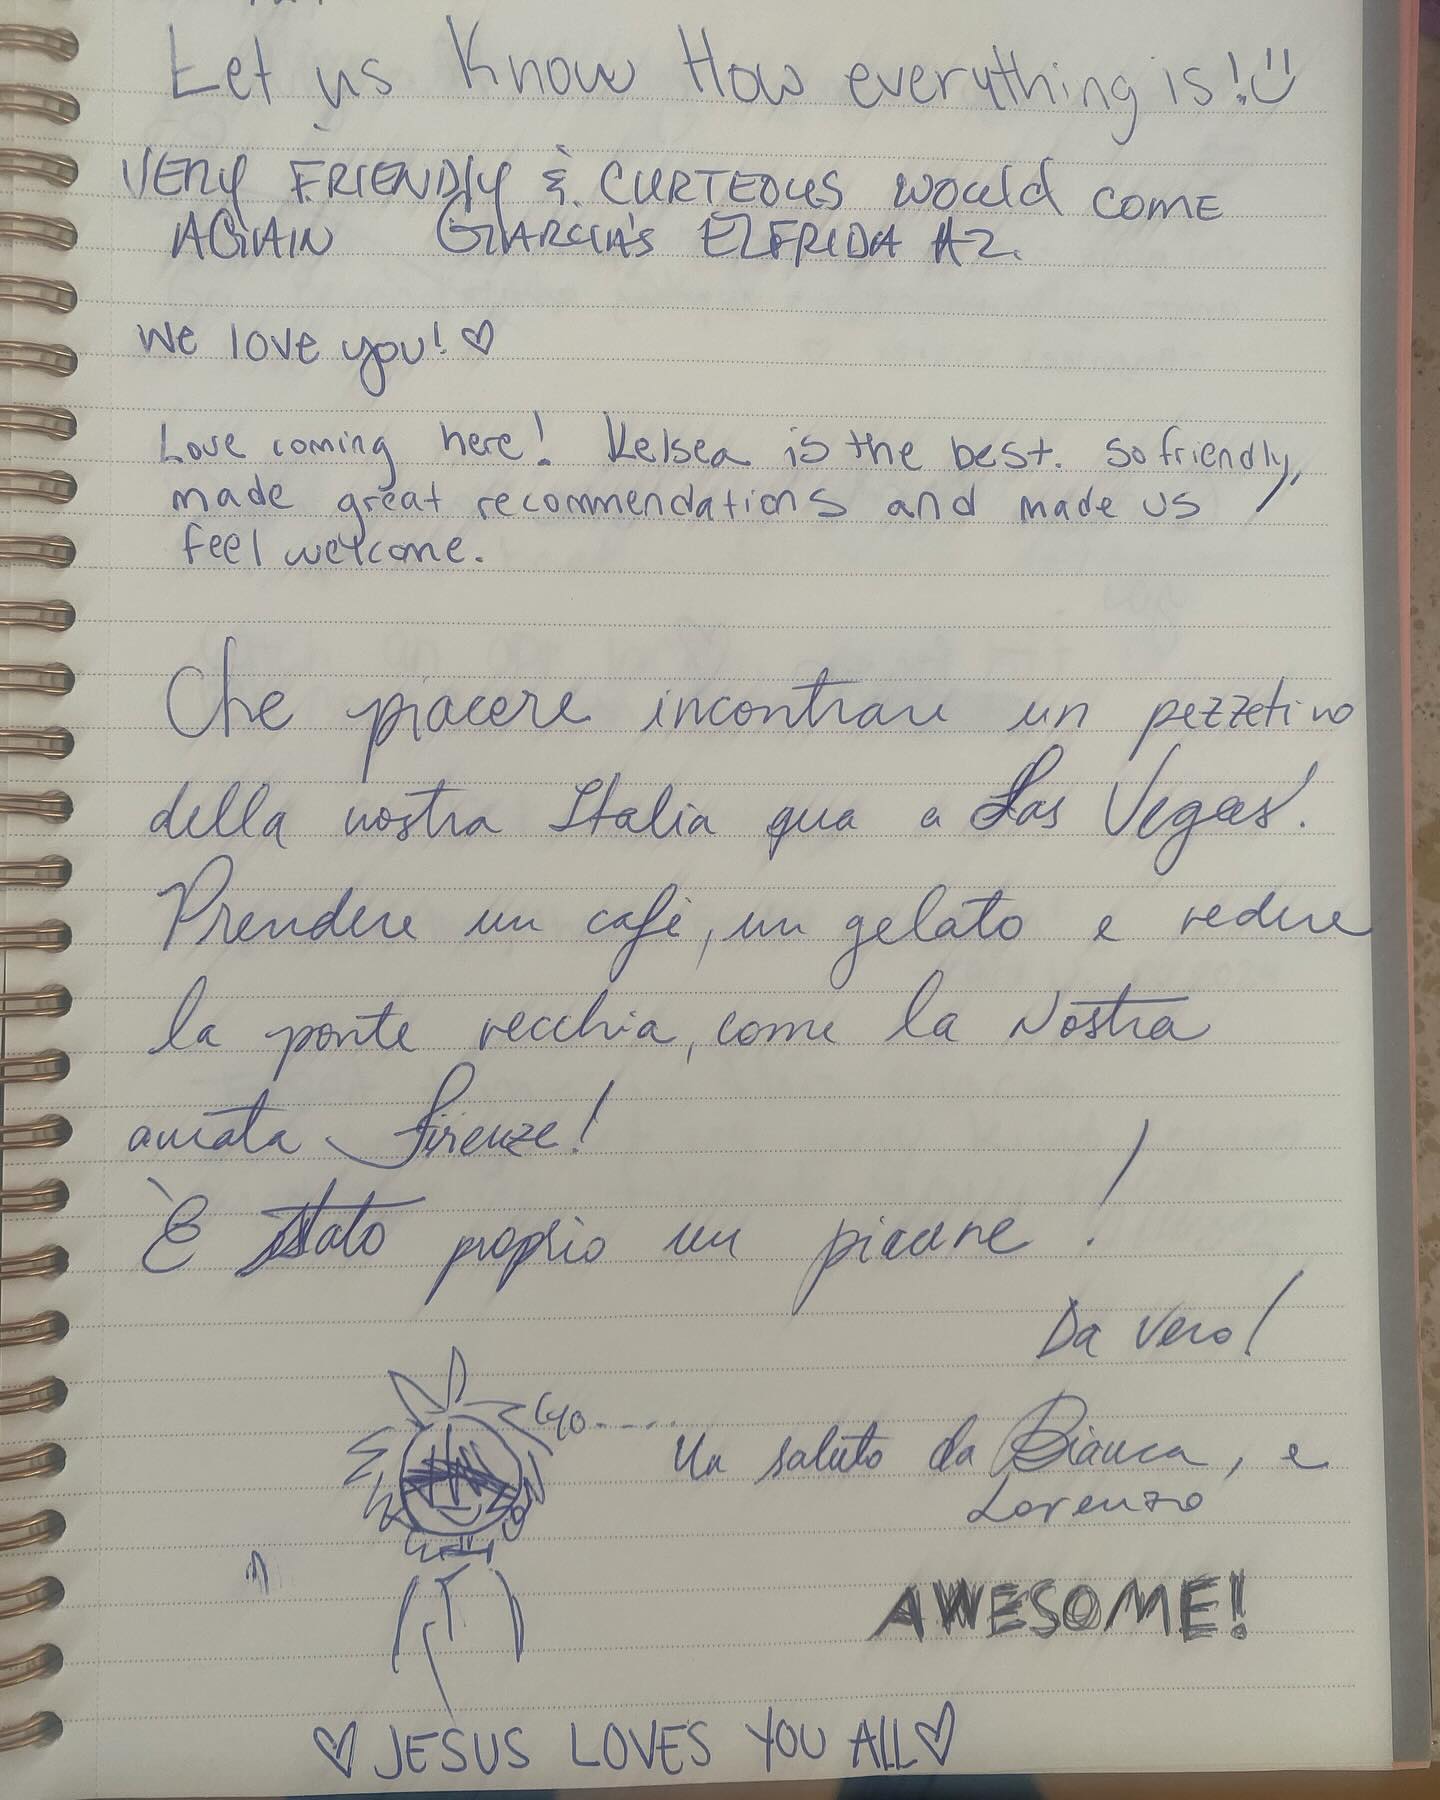 Let us Know How everything is! :)
VERY FRIENDLY & CURTEOUS would COME
AGAIN GARCIA'S ELFRIDA AZ.
We love you! ♡
Love coming here! Kelsea is the best. so friendly,
made great recommendations and made us
feel welcome.
Che piacere incontrare un pezzetino
della nostra Italia qua a Las Vegas!
Prendere un cafè, un gelato e vedere
la ponte vecchia, come la Nostra
amata Firenze!
È stato proprio un piacere!
Da vero!
Un saluto da Bianca, e
Lorenzo
AWESOME!
♡ JESUS LOVES YOU ALL ♡